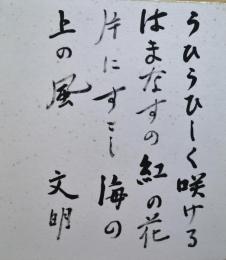 うひうひしく咲ける
はまなすの紅の花
片にすこし海の
上の風 文明